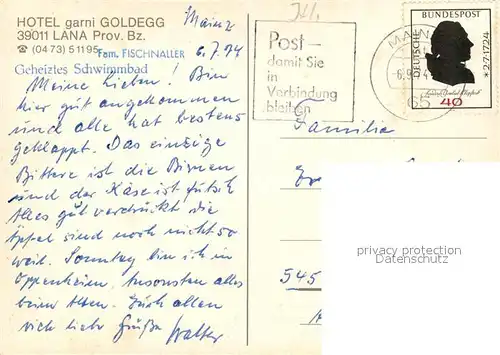 HOTEL garni GOLDEGG
39011 LANA Prov. Bz.
☎ (04 73) 51195
Fam. FISCHNALLER
Geheiztes Schwimmbad !
Mainz
6.7.74
Meine Lieben! Bin
hier gut angekommen
und alle hat bestens
geklappt. Das einzige
Bittere ist die Birnen
und der Käse ist futsch
Alles gut verdrückt die
Äpfel sind noch nicht so
weit. Sonntag bin ich in
Oppenheim, ansonsten alles
beim Alten. Euch allen
viele liebe Grüße Walter
Post –
damit Sie
in
Verbindung
bleiben
MAINZ
65
DEUTSCHE BUNDESPOST
*2·7·1724
40
Familie
545
privacy protection
Datenschutz